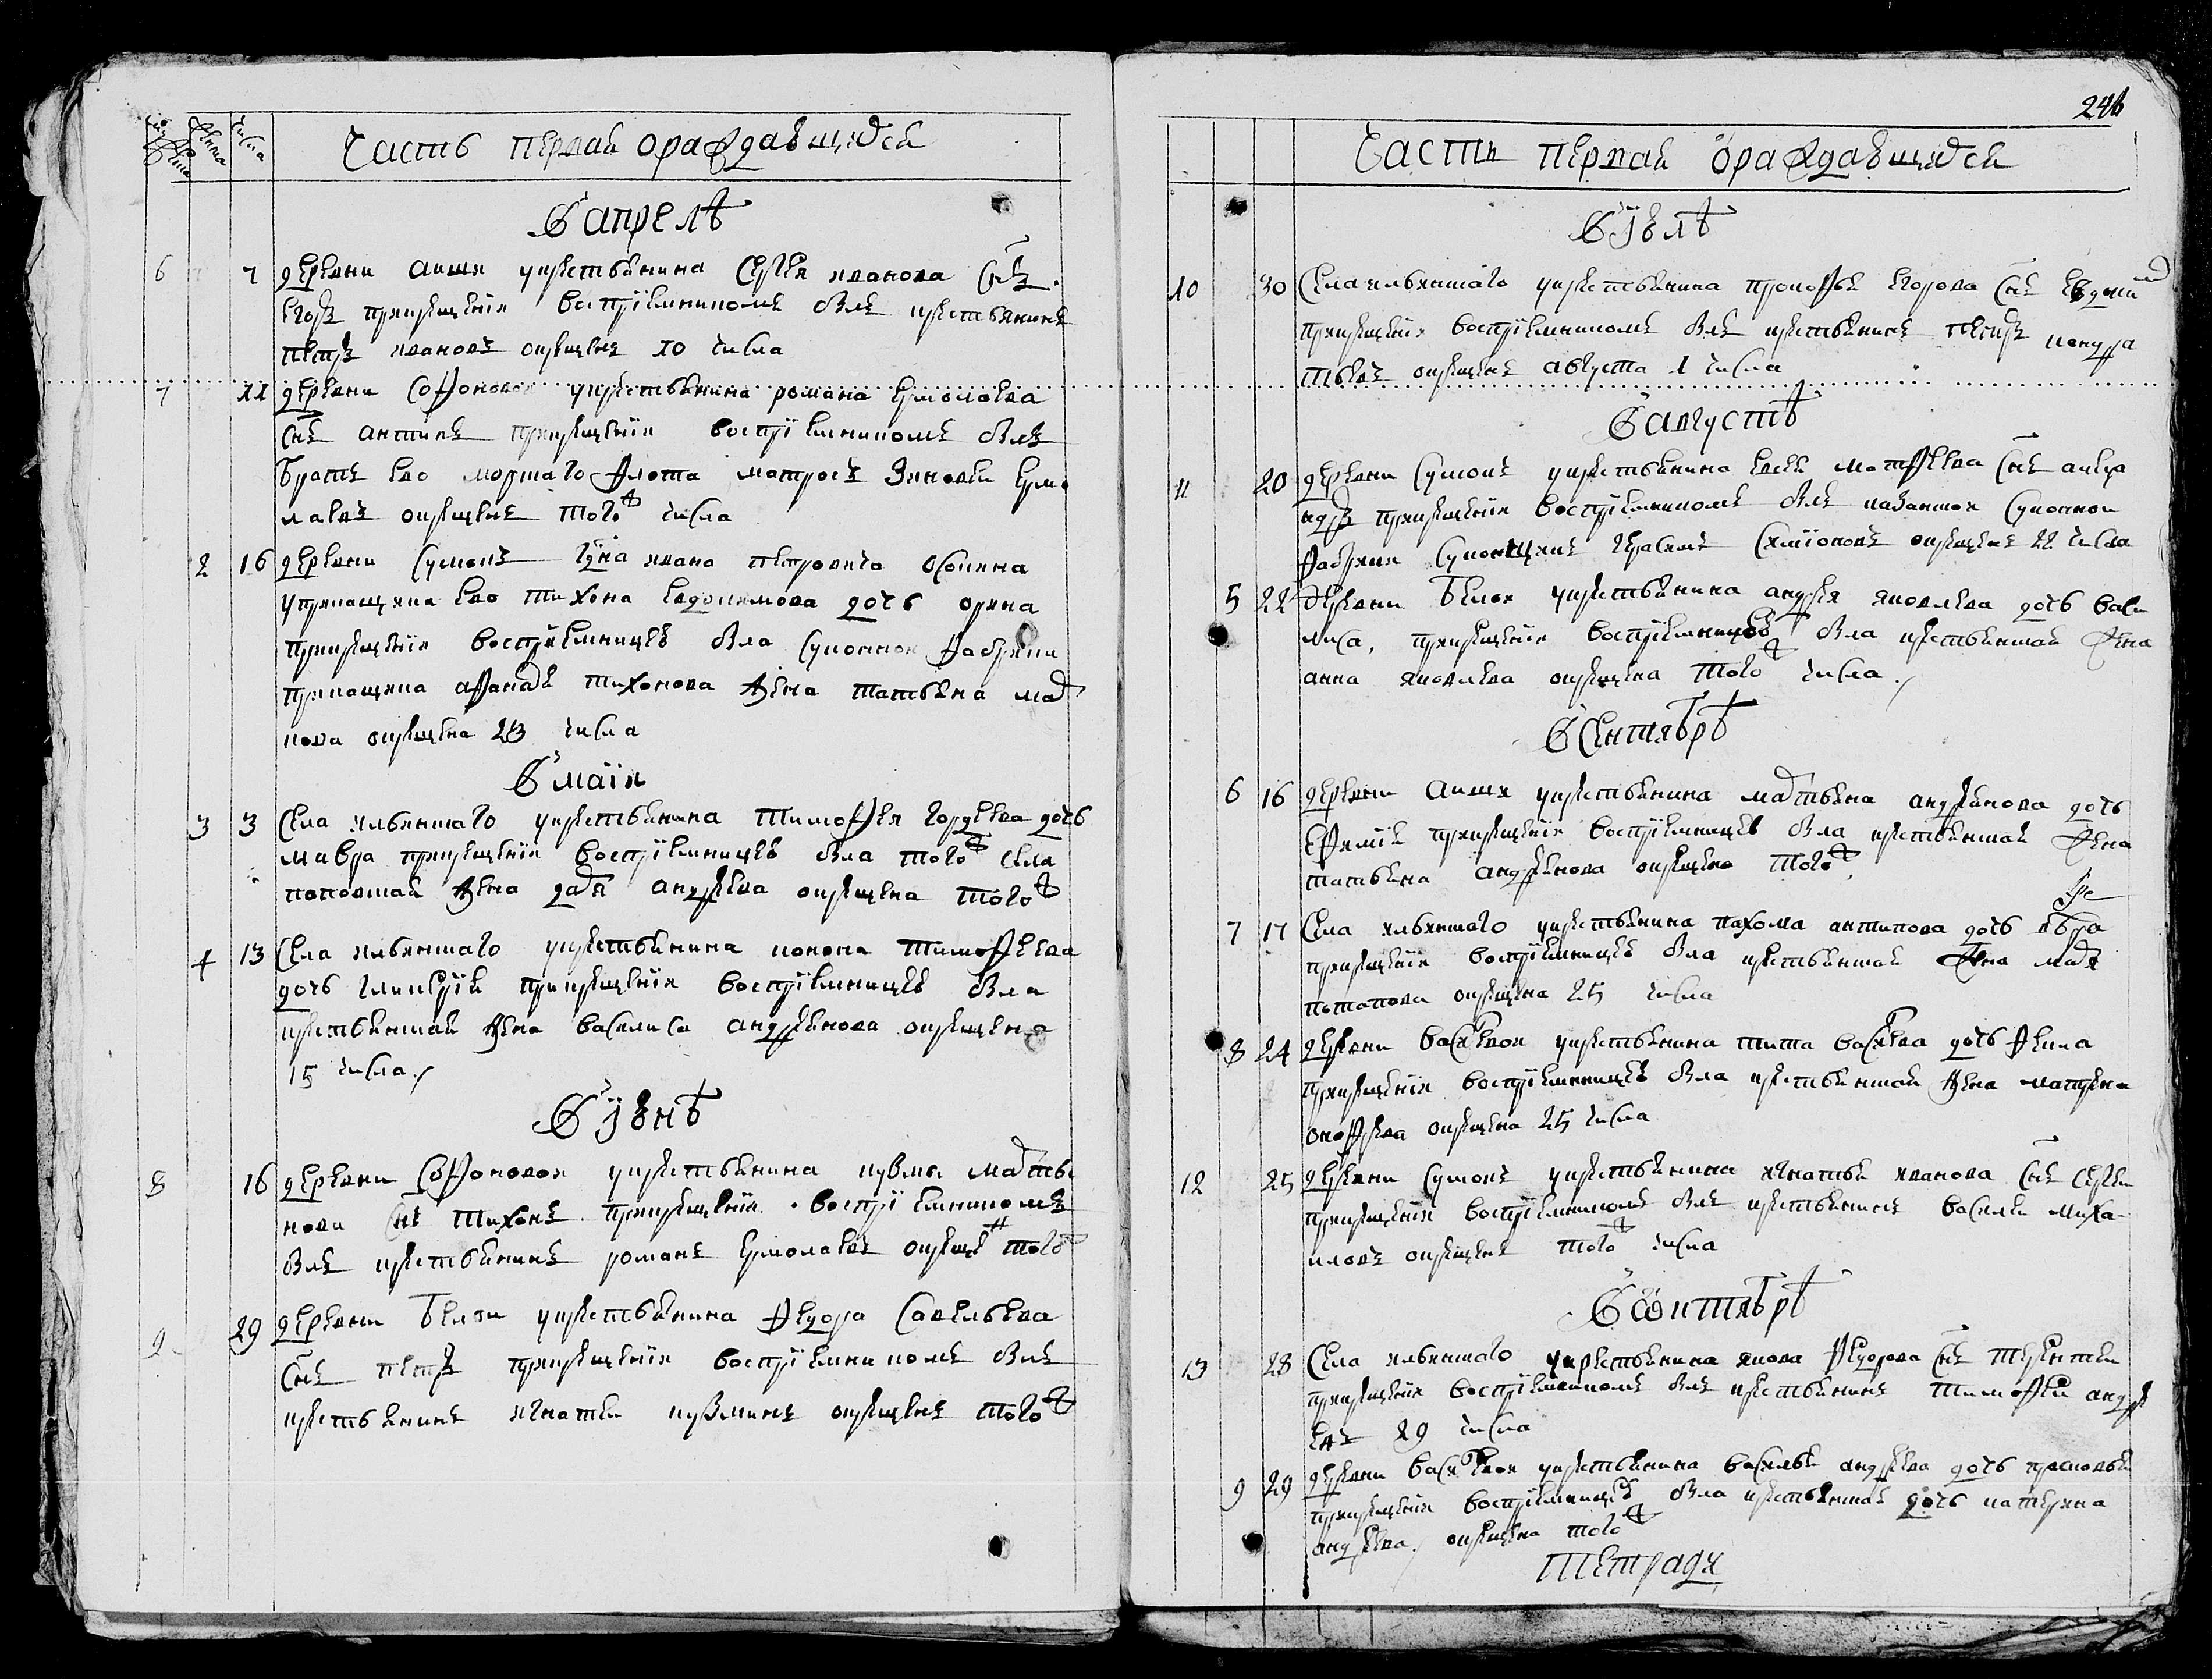 Часть первая ораждавшихся
В апрелѣ
6 7 деревни аиши у крестьянина Сергея иванова Снъ
егоръ при крещенiи воспрiемникомъ былъ крестьянинъ
петръ ивановъ окрещенъ 10 числа
7 11 деревни Софоновой у крестьянина романа ермолаева
Снъ антипъ при крещенiи воспрiемникомъ былъ
братъ ево морскаго флота матросъ Зиновеи ермо
лаевъ окрещенъ того ж числа
2 16 деревни Сумокъ гдна ивана петровича осокина
у прикащика ево тихона евдокимова дочь орина
при крещенiи воспрiемницею была Суконной фабрики
прикащика афанасья тихонова жена татьяна мас
кова окрещена 23 числа
В маiи
3 3 Села ильинскаго у крестьянина тимофея гордеева дочь
мавра при крещенiи воспрiемницею была того ж села
поповская жена дарья андреева окрещена того ж
4 13 Села ильинскаго у крестьянина конона тимофеева
дочь гликерiя при крещенiи воспрiемницею была
крестьянская жена васелиса андреянова окрещена
15 числа
В iюнѣ
8 16 деревни Софоновой у крестьянина кузмы матвея
нова Снъ тихонъ при крещенiи воспрiемникомъ
былъ крестьянинъ романъ ермолаевъ окрещен того ж
9 29 деревни белои у крестьянина федора Савельева
Снъ петръ при крещенiи воспрiемникомъ былъ
крестьянинъ игнатеи кузминъ окрещенъ того ж
Часть первая ораждавшихся
В iюлѣ
10 30 Села ильинскаго у крестьянина прокофья егорова Снъ евдоким
при крещенiи воспрiемникомъ былъ крестьянинъ петръ кондра
тьевъ окрещенъ августа 1 числа
В августѣ
11 20 деревни Сумокъ у крестьянина евсея матфеева Снъ алекса
ндръ при крещенiи воспрiемникомъ былъ казанской Суконной
фабрики Суконщикъ герасимъ Симiоновъ окрещенъ 22 числа
5 22 деревни белои у крестьянина андрея яковлева дочь васи
лиса, при крещенiи воспрiемницею была крестьянская жена
анна яковлева окрещена того ж числа
В Сентябрѣ
6 16 деревни аиши у крестьянина матвея андреянова дочь
ефимiя при крещенiи воспрiемницею была крестьянская жена
татьяна андреянова окрещена того ж
7 17 Села ильинскаго у крестьянина пахома антипова дочь
при крещенiи воспрiемницею была крестьянская жена марья
потапова окрещена 25 числа
8 24 деревни васильевои у крестьянина тита васильева дочь фекла
при крещенiи воспрiемницею была крестьянская жена матрена
онофреева окрещена 25 числа
12 25 деревни Сумокъ у крестьянина игнатья иванова Снъ Сергеи
при крещенiи воспрiемникомъ былъ крестьянинъ василеи миха
иловъ окрещенъ того ж числа
В октябрѣ
13 28 Села ильинскаго у крестьянина якова федорова Снъ терентеи
при крещенiи воспрiемникомъ былъ крестьянинъ тимофеи андре
евъ 29 числа
9 29 деревни васильевои у крестьянина василья андреева дочь прасковья
при крещенiи воспрiемницею была крестьянская дочь катерина
андреева окрещена того ж
тетради